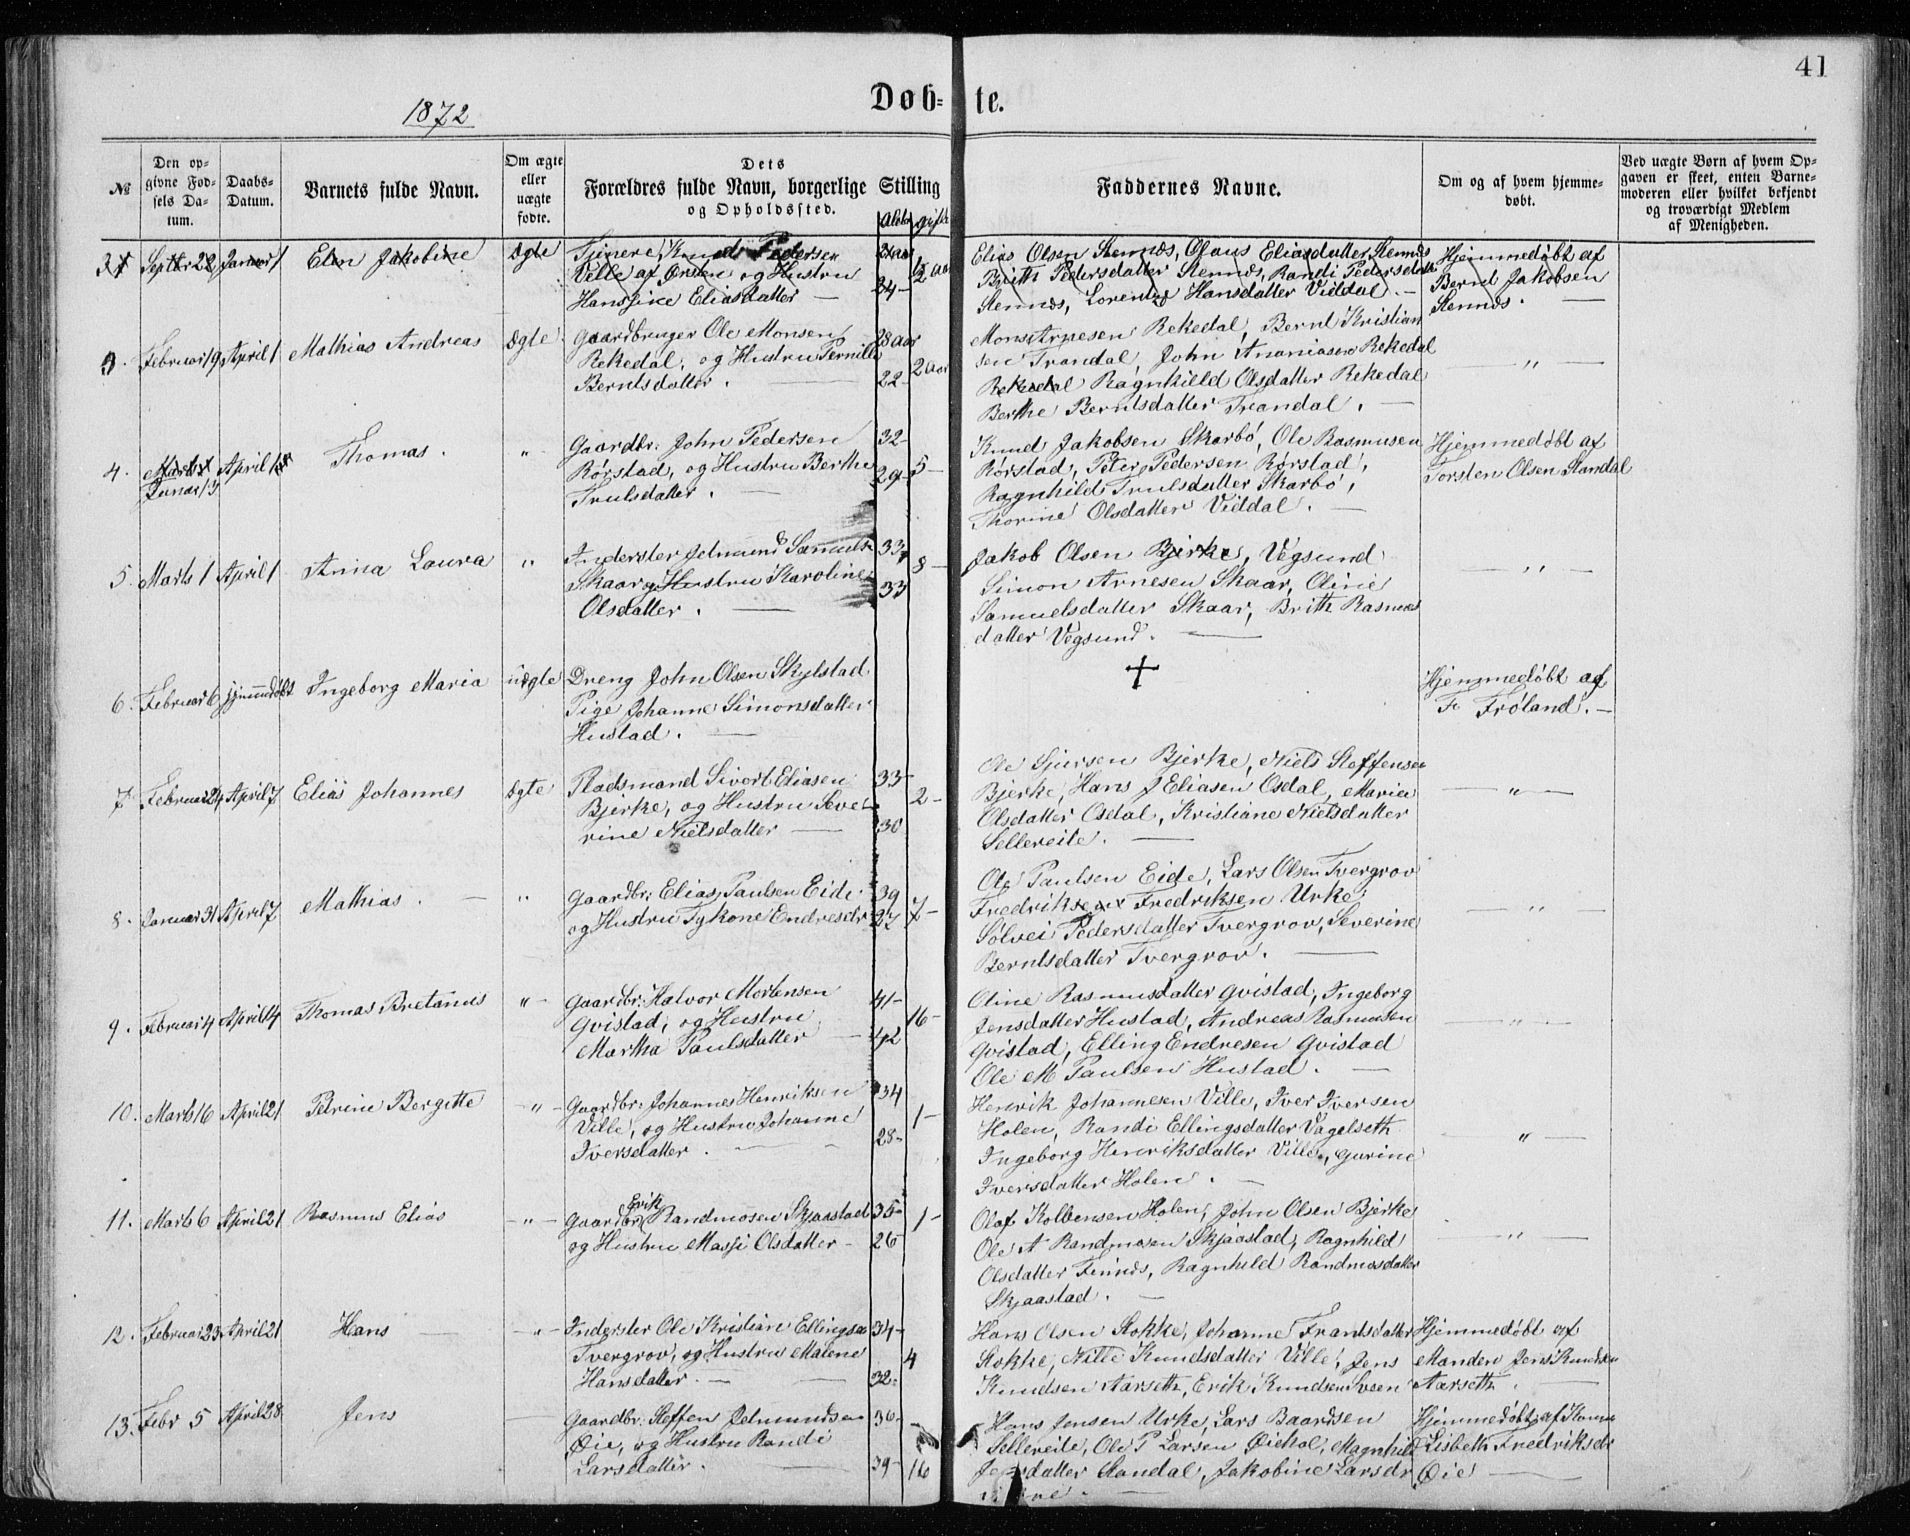 41
1872
Døb-te.
№
Den op-
givne Fød-
sels Da-
tum.
Daabs-
Datum.
Barnets fulde Navn.
Om ægte
eller
uægte
fødte.
Dets
Forældres fulde Navn, borgerlige Stilling
og Opholdssted.
Alder
gifte
Faddernes Navne.
Om og af hvem hjemme-
døbt.
Ved uægte Børn af hvem Op-
gaven er skeet, enten Barne-
moderen eller hvilket bekjendt
og troværdigt Medlem
af Menigheden.
Septbr 22 Januar 1 Elen Jakobine Ægte
Tjener Knud Pedersen
Ville af Ørsten og Hustru
Hansine Eliasdatter —
34-
2 aar
Elias Olsen Stennes, Olaus Eliasdatter Stennes
Brith Pedersdatter Stennes, Randi Pedersdatter
Stennes, Lorentse Hansdatter Viddal. —
Hjemmedøbt af
Bernt Jakobsen
Stennes. —
3. Februar 19 April 1 Mathias Andreas Ægte
Gaardbruger Ole Monsen
Rekedal, og Hustru Pernille
Berntsdatter. —
28 aar
22-
2 aar
Mons Arnesen Rekedal, Bernt Kristian
sen Trandal, John Ananiasen Rekedal
Rekedal Ragnhild Olsdatter Rekedal
Berthe Berntsdatter Trandal. —
— " —
4. Marts 1 Januar 13 April 1 Thomas. "
Gaardbr: John Pedersen
Rørstad, og Hustru Berthe
Trulsdatter. —
32-
29-
5-
Knud Jakobsen Skarbø, Ole Rasmusen
Rørstad, Peter Pedersen Rørstad,
Ragnhild Trulsdatter Skarbø,
Thorine Olsdatter Viddal. —
Hjemmedøbt af
Torsten Olsen Standal
5. Marts 1 April 1 Anna Laura "
Inderster Jetmund Samuels
Skaar og Hustru Karoline
Olsdatter. —
33
33
8-
Jakob Olsen Bjerke, Vegsund
Simon Arnesen Skaar, Oline
Samuelsdatter Skaar, Brith Rasmus
datter Vegsund. —
— " —
6. Februar 6 hjemmedøbt Ingeborg Maria uægte
Dreng John Olsen Skylstad
Pige Johanne Simonsdatter
Hustad. —
+
Hjemmedøbt af
F. Frøland. —
7 Februar 24 April 7 Elias Johannes Ægte
Pladsmand Sivert Eliasen
Bjerke, og Hustru Seve-
rine Nielsdatter —
33-
30
2-
Ole Sjursen Bjerke, Niels Steffensen
Bjerke, Hans J Eliasen Osdal, Marie
Olsdatter Osdal, Kristiane Nielsdatter
Sellereite. —
— " —
8. Januar 31 April 7 Mathias. — "
Gaardbr: Elias Paulsen Eide
og Hustru Tykone Endresdr
39
27
7-
Ole Paulsen Eide, Lars Olsen Tvergrov
Fredriksen Fredriksen Urke
Sølvei Pedersdatter Tvergrov, Severine
Berntsdatter Tvergrov. —
— " —
9. Februar 4 April 14 Thomas Bretanus " —
Gaardbr: Halvor Mortensen
Qvistad, og Hustru
Martha Paulsdatter —
41-
42
16-
Oline Rasmusdatter Qvistad, Ingeborg
Jensdatter Hustad, Andreas Rasmusen
Qvistad, Elling Endresen Qvistad
Ole M Paulsen Hustad. —
— " —
10. Marts 16 April 21 Petrine Bergitte — " —
Gaardbr: Johannes Henriksen
Ville, og Hustru Johanne
Iversdatter. —
34
28-
1-
Henrik Johannesen Ville, Iver Iversen
Holen, Randi Ellingsdatter Vagelseth
Ingeborg Henriksdatter Ville, Gurine
Iversdatter Holen. —
— " —
11. Marts 6 April 21 Rasmus Elias — " —
Gaardbr: Erik Randmosen Skjaastad
og Hustru Massi Olsdatter —
35-
26
1-
Olaf Kolbensen Holen, John Olsen Bjerke
Ole A Randmosen Skjaastad, Ragnhild
Olsdatter Finnes, Ragnhild Randmosdatter
Skjaastad. —
— " —
12. Februar 23 April 21 Hans — " —
Inderster Ole Kristian Ellingsen
Tvergrov, og Hustru Malene
Hansdatter. —
34-
32-
4
Hans Olsen Stokke, Johanne Frantsdatter
Stokke, Nille Knudsdatter Ville, Jens
Knudsen Aarseth, Erik Knudsen
Hjemmedøbt af
Manden Jens Knudsen
Aarseth. —
13. Febr 5 April 28 Jens —
Gaardbr: Steffen Jetmundsen
Øie, og Hustru Randi
Larsdatter. —
36-
39-
16
Hans Jensen Urke, Lars Baardsen
Sellereite, Ole P Larsen Øiehol, Magnhild
Jensdatter Standal, Jakobine Larsdr
Hjemmedøbt af Kone
Lisbeth Fredriksdr
Øie —